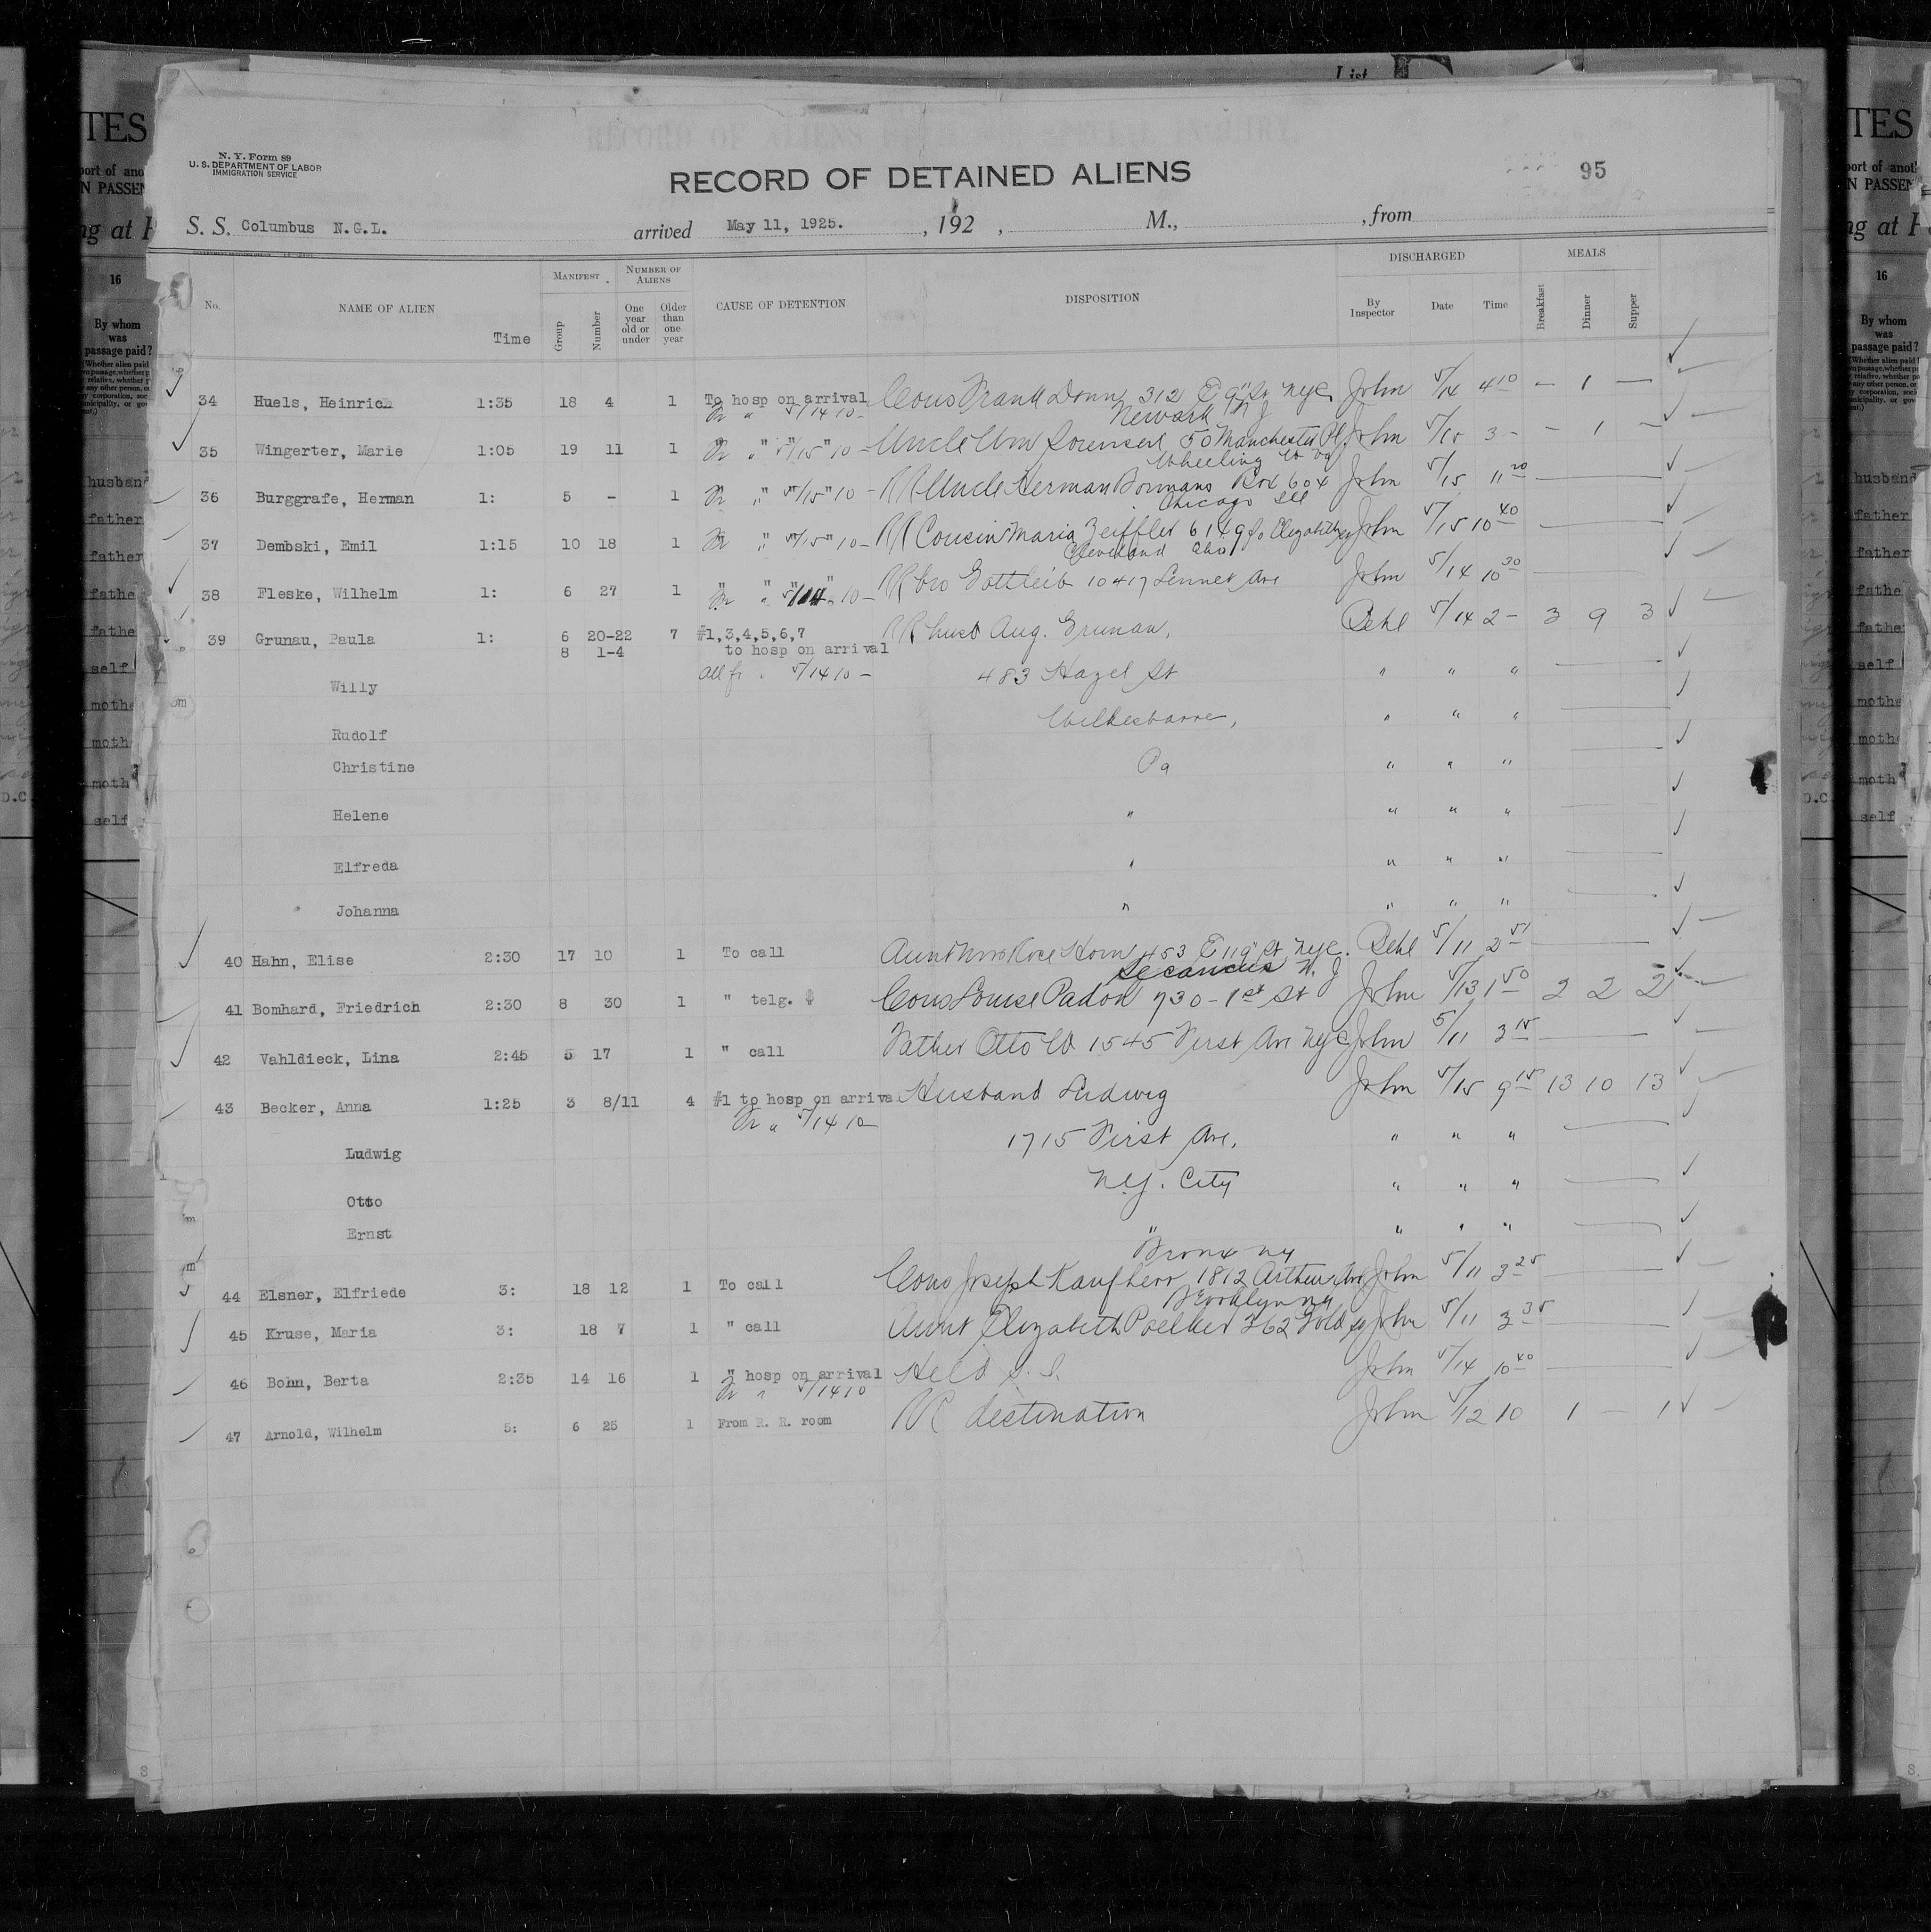 List
N. Y. Form 89
U. S. DEPARTMENT OF LABOR
IMMIGRATION SERVICE
RECORD OF DETAINED ALIENS
95
S. S. Columbus N.G.L. arrived May 11, 1925. , 192 , M., , from
No. NAME OF ALIEN Time MANIFEST Group Number NUMBER OF ALIENS One year old or under Older than one year CAUSE OF DETENTION DISPOSITION DISCHARGED By Inspector Date Time MEALS Breakfast Dinner Supper
34 Huels, Heinrich 1:35 18 4 1 To hosp on arrival Cous Frank Donn 312 E 9" St NYC John 5/14 4 10 — 1 —
Fr " 5/14 10 — Newark N J
35 Wingerter, Marie 1:05 19 11 1 " " " Uncle Wm Sorensen 50 Manchester Pl. John 5/15 3 — — 1 —
Fr " 5/15 10 — Wheeling W Va
36 Burggrafe, Herman 1: 5 - 1 " " " RR Uncle Herman Bormans Box 604 John 5/15 11 20
Fr " 5/15 10 — Chicago Ill
37 Dembski, Emil 1:15 10 18 1 " " " RR Cousin Maria Zeiffler 6149 So Elizabeth St John 5/15 10 40
Fr " 5/15 10 — Cleveland Ohio
38 Fleske, Wilhelm 1: 6 27 1 " " " RR bro Gottleib 10417 Lennet Ave John 5/14 10 30
Fr " 5/14 10 —
39 Grunau, Paula 1: 6 20-22 7 #1,3,4,5,6,7 RR husb Aug. Grunau, Pehl 5/14 2 — 3 9 3
8 1-4 to hosp on arrival
All fr " 5/14 10 — 483 Hazel St " " "
Willy
Wilkesbarre, " " "
Rudolf
Christine Pa " " "
Helene " " " "
Elfreda " " " "
Johanna " " " "
40 Hahn, Elise 2:30 17 10 1 To call Aunt Mrs Rose Horn 453 E 119" St NYC. Pehl 5/11 2 51
Secaucus N. J
41 Bomhard, Friedrich 2:30 8 30 1 " telg. $ Cous Louise Padon 730 - 1st St John 5/13 1 50 2 2 2
42 Vahldieck, Lina 2:45 5 17 1 " call Father Otto W 1545 First Ave NYC John 5/11 3 15
43 Becker, Anna 1:25 3 8/11 4 #1 to hosp on arriva Husband Ludwig John 5/15 9 15 13 10 13
Fr " 5/14 10 —
Ludwig 1715 First Ave. " " "
Otto N.Y. City " " "
Ernst " " " "
Bronx NY
44 Elsner, Elfriede 3: 18 12 1 To call Cous Joseph Kaufherr 1812 Arthur Ave John 5/11 3 25
Brooklyn NY
45 Kruse, Maria 3: 18 7 1 " call Aunt Elizabeth Poelker 362 Gold St John 5/11 3 35
46 Bohn, Berta 2:35 14 16 1 " hosp on arrival Held S. I. John 5/14 10 40
Fr " 5/14 10
47 Arnold, Wilhelm 5: 6 25 1 From R. R. room RR destination John 5/12 10 1 — 1